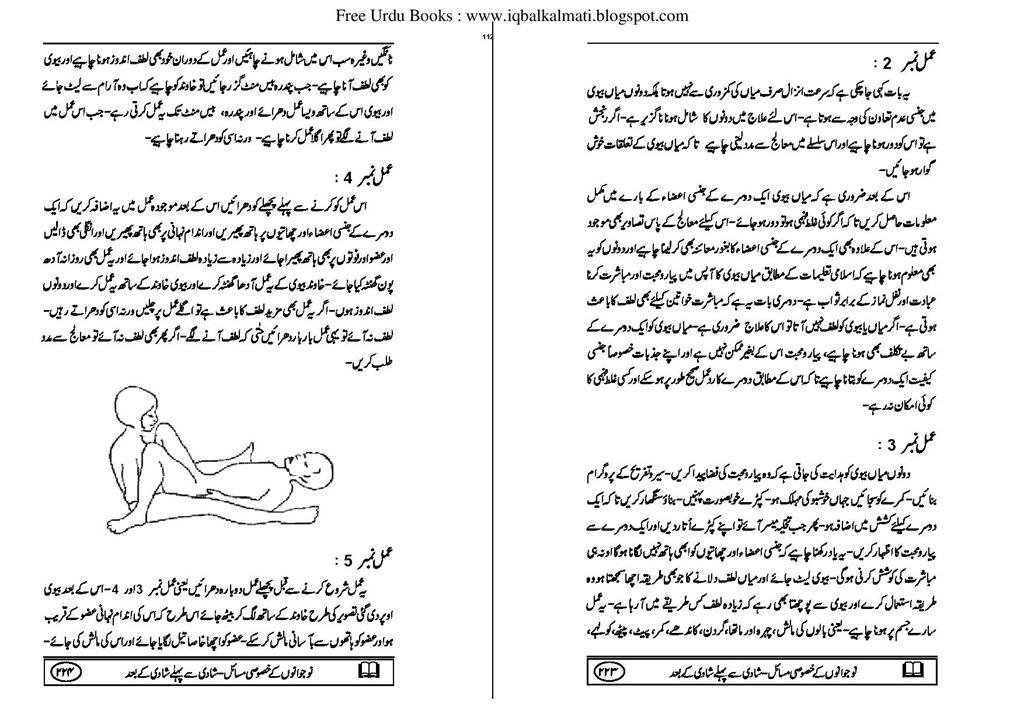 Free Urdu Books : www.iqbalkalmati.blogspot.com
112
عمل نمبر 2 :
یہ بات کہی جا چکی ہے کہ سرعت انزال صرف میاں کی کمزوری سے نہیں ہوتا بلکہ دونوں میاں بیوی
میں جنسی عدم تعاون کی وجہ سے ہوتا ہے- اس لئے علاج میں دونوں کا شامل ہونا ناگزیر ہے- اگر رنجش
ہے تو اس کو دور ہونا چاہیے اور اس سلسلے میں معالج سے مدد لینی چاہیے تا کہ میاں بیوی کے تعلقات خوش
گوار ہو جائیں-
اس کے بعد ضروری ہے کہ میاں بیوی ایک دوسرے کے جنسی اعضاء کے بارے میں مکمل
معلومات حاصل کریں تا کہ اگر کوئی غلط فہمی ہو تو دور ہو جائے- اس کیلئے معالج کے پاس تصاویر بھی موجود
ہوتی ہیں- اس کے علاوہ بھی ایک دوسرے کے جنسی اعضاء کا بغور معائنہ بھی کر لینا چاہیے اور دونوں کو یہ
بھی معلوم ہونا چاہیے کہ اسلامی تعلیمات کے مطابق میاں بیوی کا آپس میں پیار و محبت اور مباشرت کرنا
عبادت اور نفل نماز کے برابر ثواب ہے- دوسری بات یہ ہے کہ مباشرت خواتین کیلئے بھی لطف کا باعث
ہوتی ہے- اگر میاں یا بیوی کو لطف نہیں آتا تو اس کا علاج ضروری ہے- میاں بیوی کو ایک دوسرے کے
ساتھ بے تکلف بھی ہونا چاہیے، پیار و محبت اس کے بغیر ممکن نہیں ہے اور اپنے جذبات خصوصاً جنسی
کیفیت ایک دوسرے کو بتانا چاہیے تا کہ اس کے مطابق دوسرے کا رد عمل صحیح طور پر ہو سکے اور کسی غلط فہمی کا
کوئی امکان نہ رہے-
عمل نمبر 3 :
دونوں میاں بیوی کو ہدایت کی جاتی ہے کہ وہ پیار و محبت کی فضا پیدا کریں- سیر و تفریح کے پروگرام
بنائیں- کمرے کو سجائیں جہاں خوشبو کی مہلک ہو- کپڑے خوبصورت پہنیں- بناؤ سنگھار کریں تا کہ ایک
دوسرے کیلئے کشش میں اضافہ ہو- پھر جب تخلیہ میسر آئے تو اپنے کپڑے اُتار دیں اور ایک دوسرے سے
پیار و محبت کا اظہار کریں- یہ یاد رکھنا چاہیے کہ جنسی اعضاء اور چھاتیوں کو ابھی ہاتھ نہیں لگانا ہو گا اور نہ ہی
مباشرت کی کوشش کرنی ہو گی- بیوی لیٹ جائے اور میاں لطف دلانے کا جو بھی طریقہ اچھا سمجھتا ہو وہ
طریقہ استعمال کرے اور بیوی سے پوچھتا بھی رہے کہ زیادہ لطف کس طریقے میں آ رہا ہے- یہ عمل
سارے جسم پر ہونا چاہیے- یعنی بالوں کی مالش، چہرہ اور ماتھا، گردن، کاندھے، کمر، پیٹ، پیٹھ، کولہے،
نوجوانوں کے خصوصی مسائل- شادی سے پہلے شادی کے بعد ۲۲۳
ٹانگیں وغیرہ سب اس میں شامل ہونے چاہئیں اور عمل کے دوران خود بھی لطف اندوز ہونا چاہیے اور بیوی
کو بھی لطف آنا چاہیے- جب پندرہ بیس منٹ گزر جائیں تو خاوند کو چاہیے کہ اب وہ آرام سے لیٹ جائے
اور بیوی اس کے ساتھ ویسا عمل دھرائے اور پندرہ، بیس منٹ تک یہ عمل کرتی رہے- جب اس عمل میں
لطف آنے لگے تو پھر اگلا عمل کرنا چاہیے- ورنہ اسی کو دھراتے رہنا چاہیے-
عمل نمبر 4 :
اس عمل کو کرنے سے پہلے پچھلے کو دھرائیں اس کے بعد موجودہ عمل میں یہ اضافہ کریں کہ ایک
دوسرے کے جنسی اعضاء اور چھاتیوں پر ہاتھ پھیریں اور اندام نہانی پر بھی ہاتھ پھیریں اور انگلی بھی ڈالیں
اور عضو اور فوتوں پر بھی ہاتھ پھیرا جائے اور زیادہ سے زیادہ لطف اندوز ہوا جائے اور یہ عمل بھی روزانہ آدھ
پون گھنٹہ کیا جائے- خاوند بیوی کے یہ عمل آدھا گھنٹہ کرے اور بیوی خاوند کے ساتھ یہ عمل کرے اور دونوں
لطف اندوز ہوں- اگر یہ عمل بھی مزید لطف کا باعث ہے تو اگلے عمل پر چلیں ورنہ اسی کو دھراتے رہیں-
لطف نہ آئے تو یہی عمل بار بار دھرائیں حتٰی کہ لطف آنے لگے- اگر پھر بھی لطف نہ آئے تو معالج سے مدد
طلب کریں-
عمل نمبر 5 :
یہ عمل شروع کرنے سے قبل پچھلے عمل دوبارہ دھرائیں یعنی عمل نمبر 3 اور 4- اس کے بعد بیوی
اوپر دی گئی تصویر کی طرح خاوند کے ساتھ لگ کر بیٹھ جائے اس طرح کہ اس کی اندام نہانی عضو کے قریب
ہو اور عضو کو ہاتھوں سے بآسانی مالش کر سکے- عضو کو اچھا خاصا تیل لگایا جائے اور اس کی مالش کی جائے-
نوجوانوں کے خصوصی مسائل- شادی سے پہلے شادی کے بعد ۲۲۴